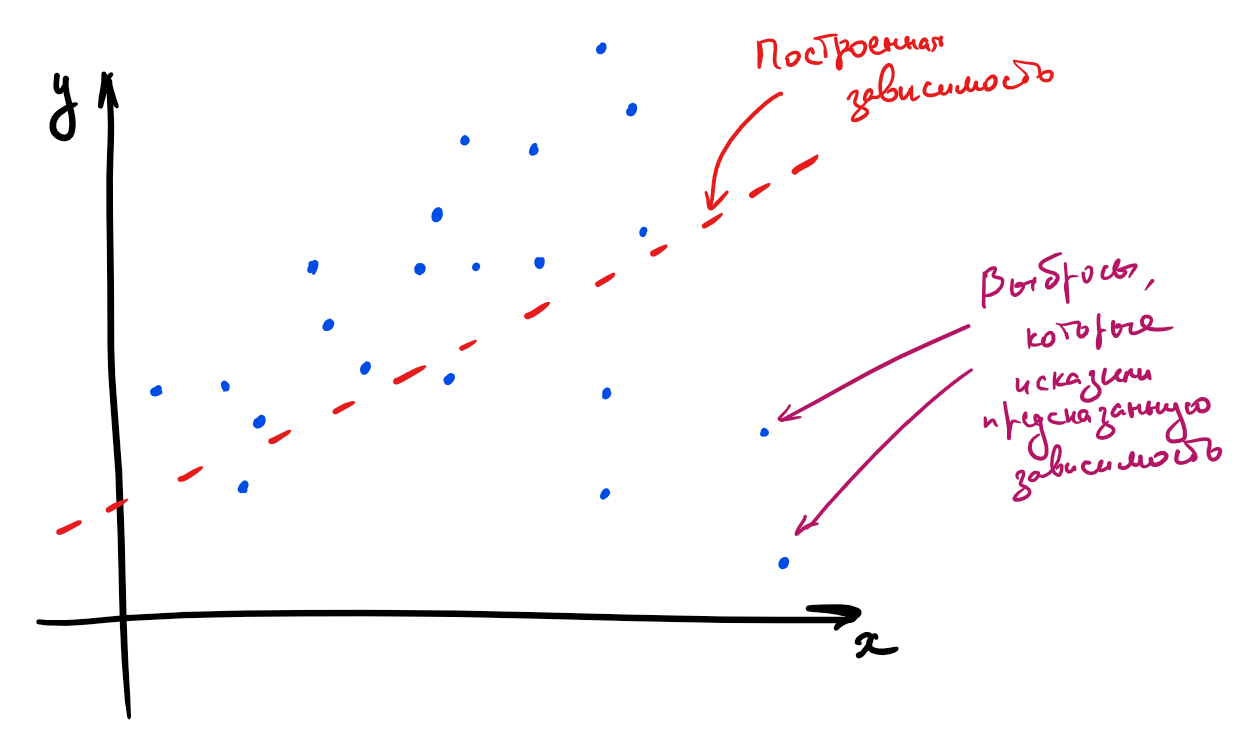 y
Построенная
зависимость
Выбросы,
которые
исказили
предсказанную
зависимость
x